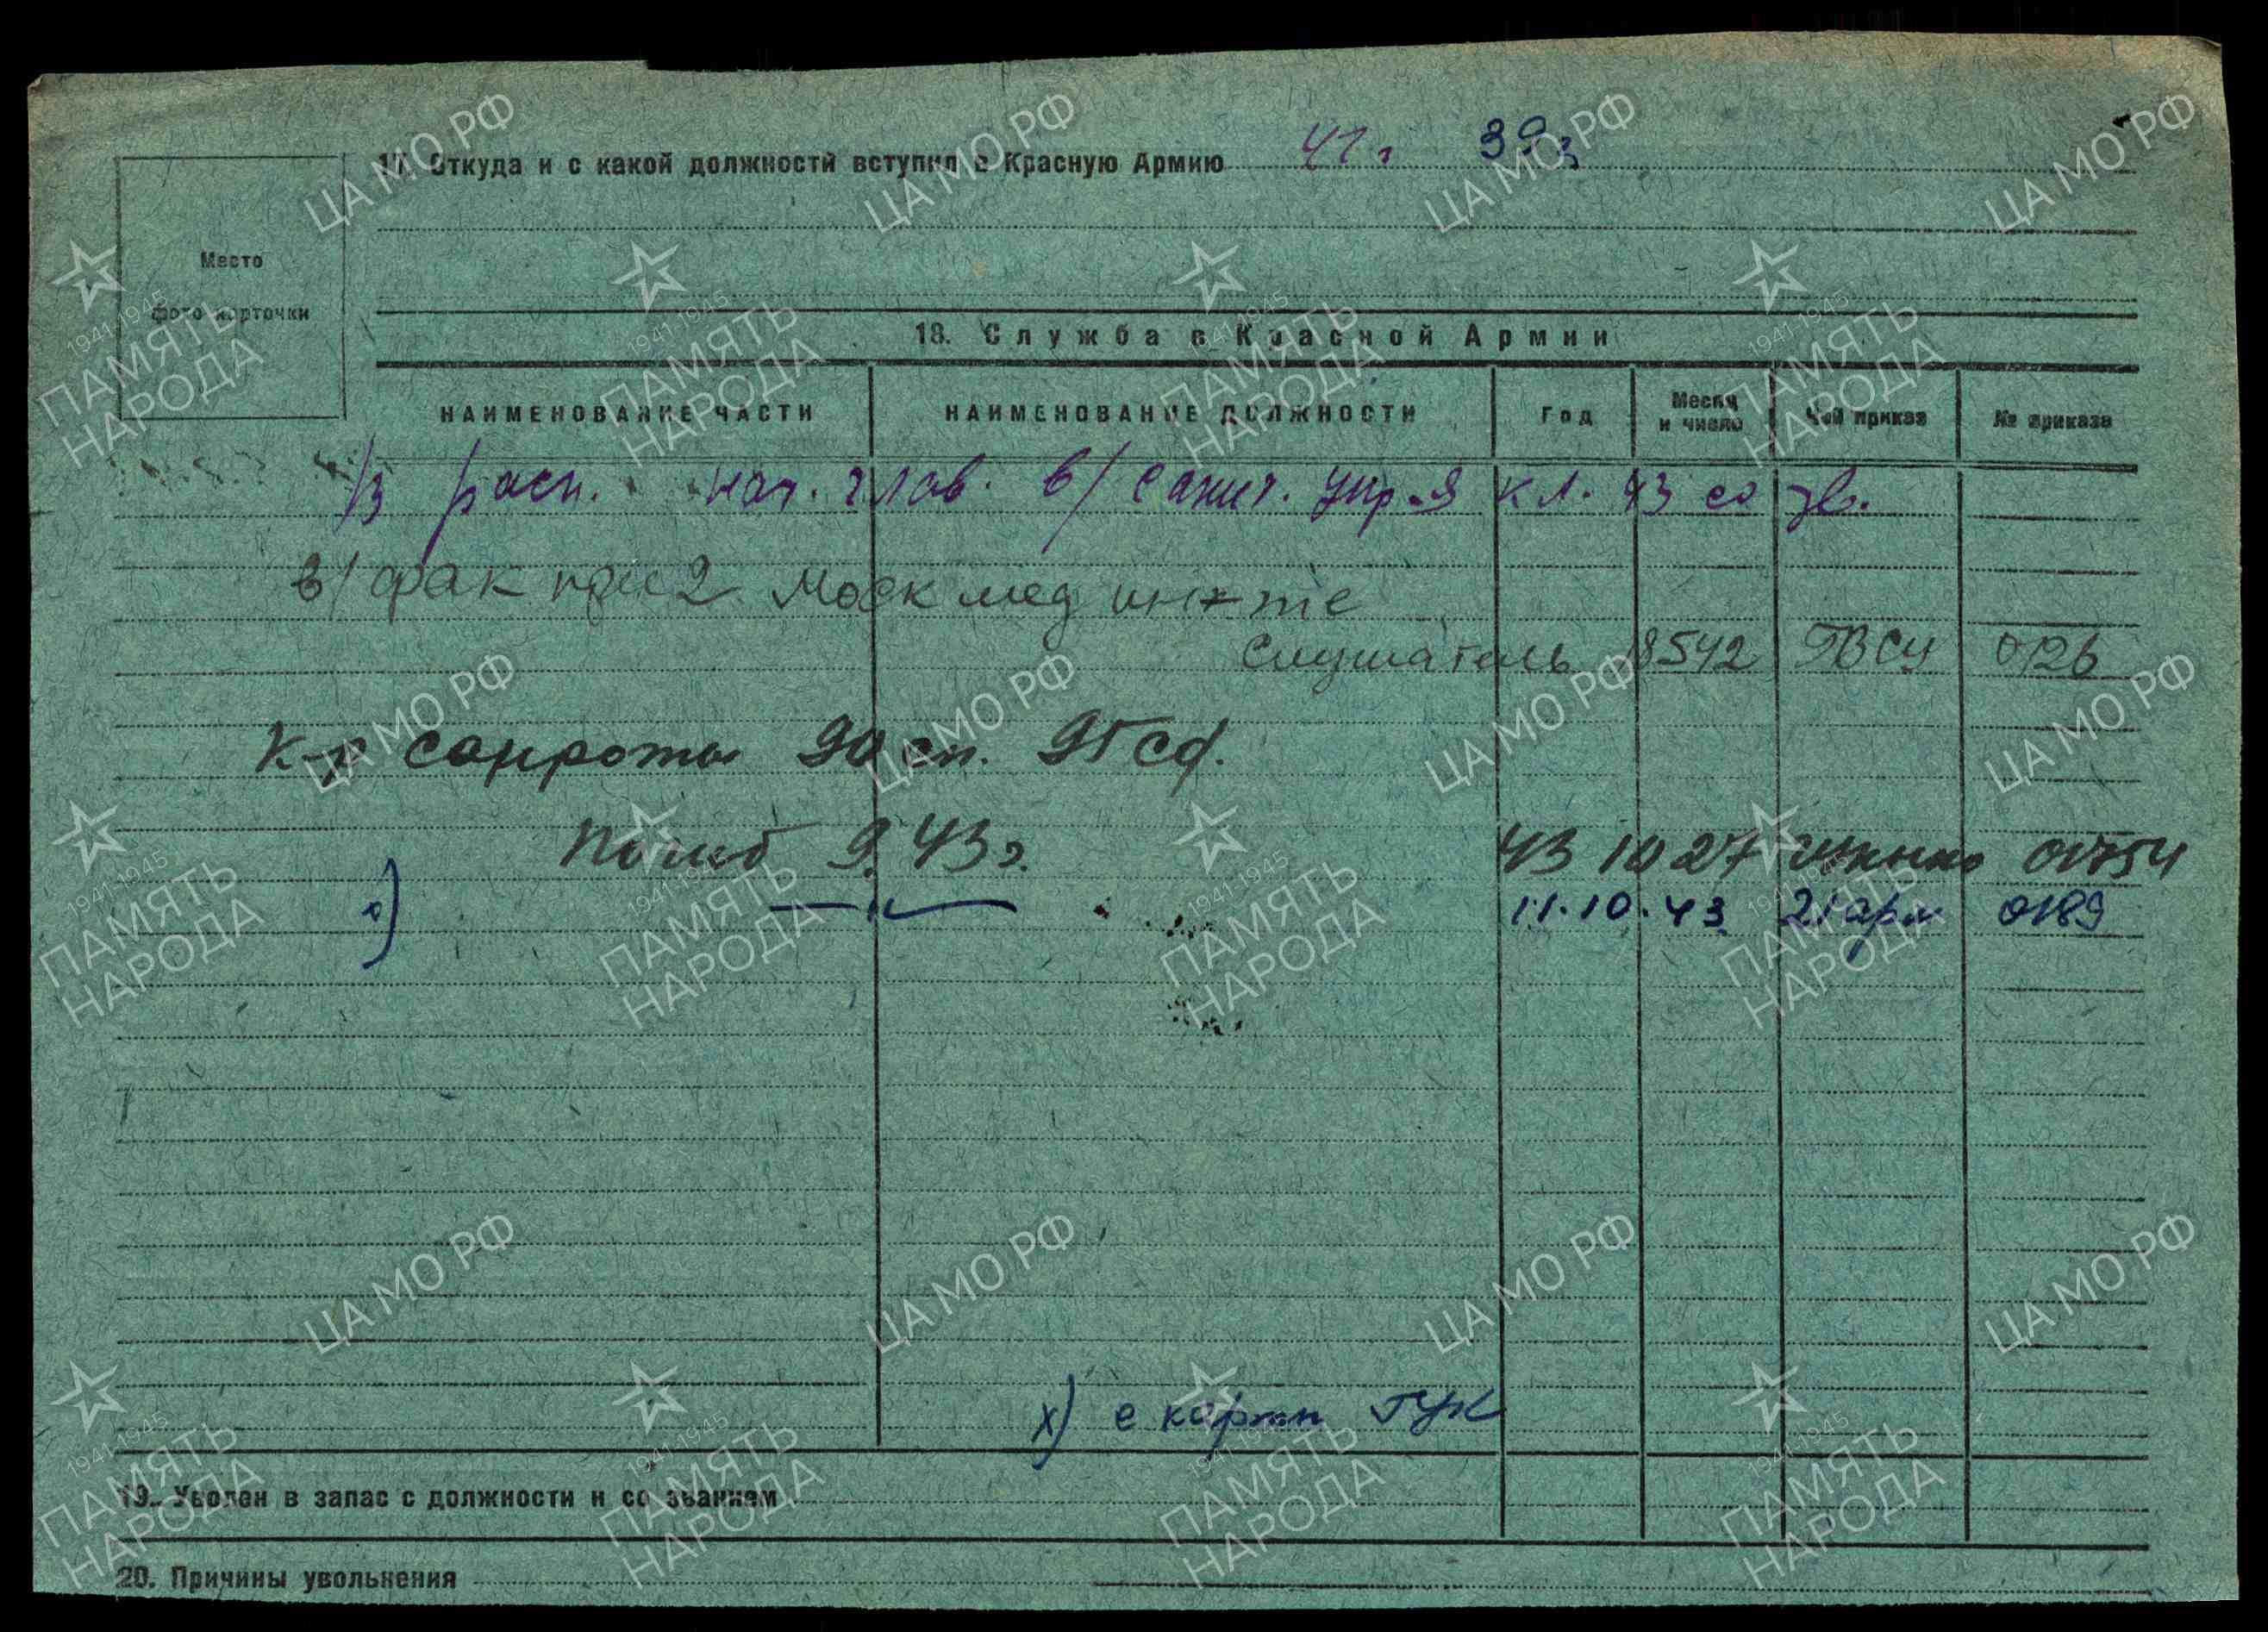 17. Откуда и с какой должности вступил в Красную Армию 41 г 39 г
Место
фото карточки
18. Служба в Красной Армии
НАИМЕНОВАНИЕ ЧАСТИ НАИМЕНОВАНИЕ ДОЛЖНОСТИ Год Месяц и число Чей приказ № приказа
В расп. нач. глав. в/санит. упр-я кл. 43 со зв.
в/фак при 2 Моск мед ин-те
слушатель 8542 ГВСУ 0126
К-р санроты 90 сп. 95 сд.
Погиб 9.43 г. 43 10 27 01754
—"— 11.10.43 21 арм 0189
х) с карт ГУК
19. Уволен в запас с должности и со званием
20. Причины увольнения
ЦА МО РФ
1941-1945
ПАМЯТЬ
НАРОДА